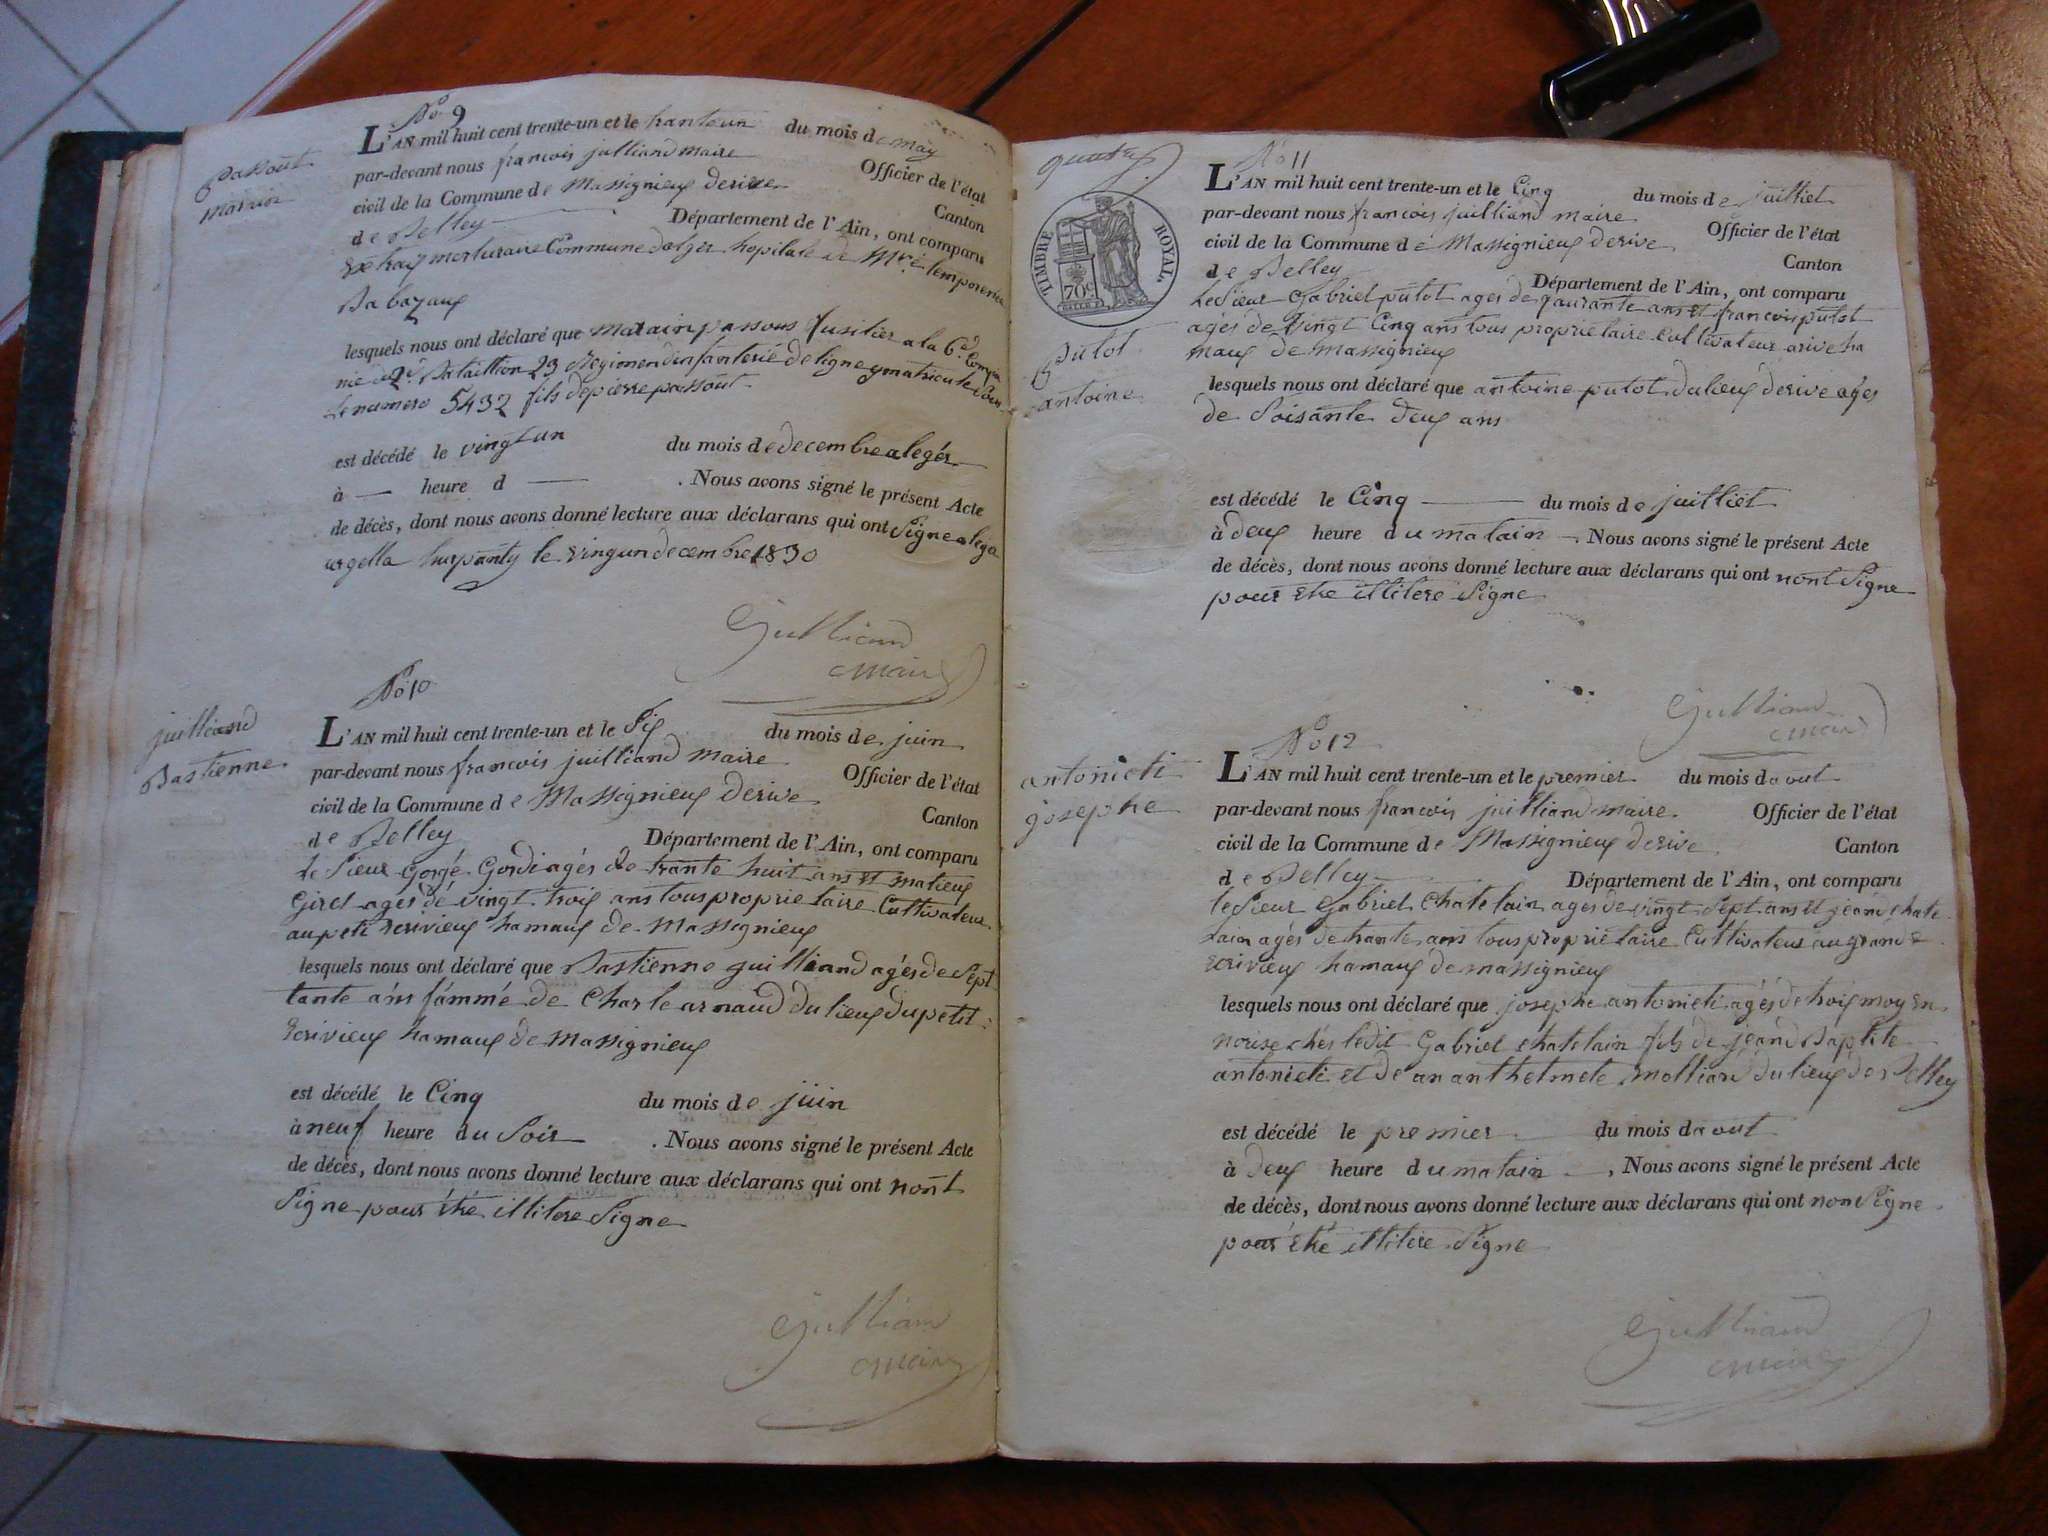 No 9
passout
marin
L'AN mil huit cent trente-un et le tranteun du mois de may
par-devant nous francois julliand maire Officier de l'état
civil de la Commune de Massignieux derive Canton
de Belley Département de l'Ain, ont comparu
Extrai morturaire Commune dalger hopital de
Babazoux
lesquels nous ont déclaré que passous fusilier a la 6e Compa
nie 2e Bataillion 23 Regimen dinfanterié de ligne
le numero 5432 fils de pierre passout
est décédé le vingt un du mois de decembre alegér
à — heure d — . Nous avons signé le présent Acte
de décès, dont nous avons donné lecture aux déclarans qui ont Signe
le vingun decembre 1830
Gulliand
maire
No 10
juilliand
Bastienne
L'AN mil huit cent trente-un et le Six du mois de juin
par-devant nous francois juilliand maire Officier de l'état
civil de la Commune de Massignieux derive Canton
de Belley Département de l'Ain, ont comparu
le Sieur Gorgé Gordi agés de trante huit ans et matieux
Giret agés dé vingt trois ans tous proprietaire Cultivateur
au peti Ecrivieux hamaux de Massignieux
lesquels nous ont déclaré que Bastienne guilliand agés de Sept
tante ans fammé de Charle arnaud du lieux du petit
Ecrivieux hamaux de Massignieux
est décédé le Cinq du mois de juin
à neuf heure du Soir . Nous avons signé le présent Acte
de décès, dont nous avons donné lecture aux déclarans qui ont nont
Signe pour étré illitere Signe
Gulliand
maire
TIMBRE ROYAL
70c
No 11
putot
antoine
L'AN mil huit cent trente-un et le Cinq du mois de juilliet
par-devant nous francois juilliand maire Officier de l'état
civil de la Commune de Massignieux derive Canton
de Belley Département de l'Ain, ont comparu
le Sieur Gabriel putot ages de quarante ans et francois putot
agés de vingt Cinq ans tous proprietaire Cultivateur arive ha
maux de Massignieux
lesquels nous ont déclaré que antoine putot du lieux derive agés
de Soisante deux ans
est décédé le Cinq du mois de juilliet
à deux heure du matain . Nous avons signé le présent Acte
de décès, dont nous avons donné lecture aux déclarans qui ont nont Signe
pour etre illitere Signe
Gulliand
maire
No 12
antonieti
josephe
L'AN mil huit cent trente-un et le premier du mois daout
par-devant nous francois juilliand maire Officier de l'état
civil de la Commune de Massignieux derive Canton
de Belley Département de l'Ain, ont comparu
le Sieur Gabriel Chatelain agés de vingt Sept ans et jean Chate
lain agés de trante ans tous proprietaire Cultivateur au grand
Ecrivieux hamaux de massignieux
lesquels nous ont déclaré que josephe antonieti agés de trois moy en
norise chés ledit Gabriel chatelain fils de jéan Baptite
antonieti et de anthelmete molliard du lieux de Belley
est décédé le premier du mois daout
à deux heure du matain . Nous avons signé le présent Acte
de décès, dont nous avons donné lecture aux déclarans qui ont non Signe
pour étré illitere Signe
Gulliand
maire